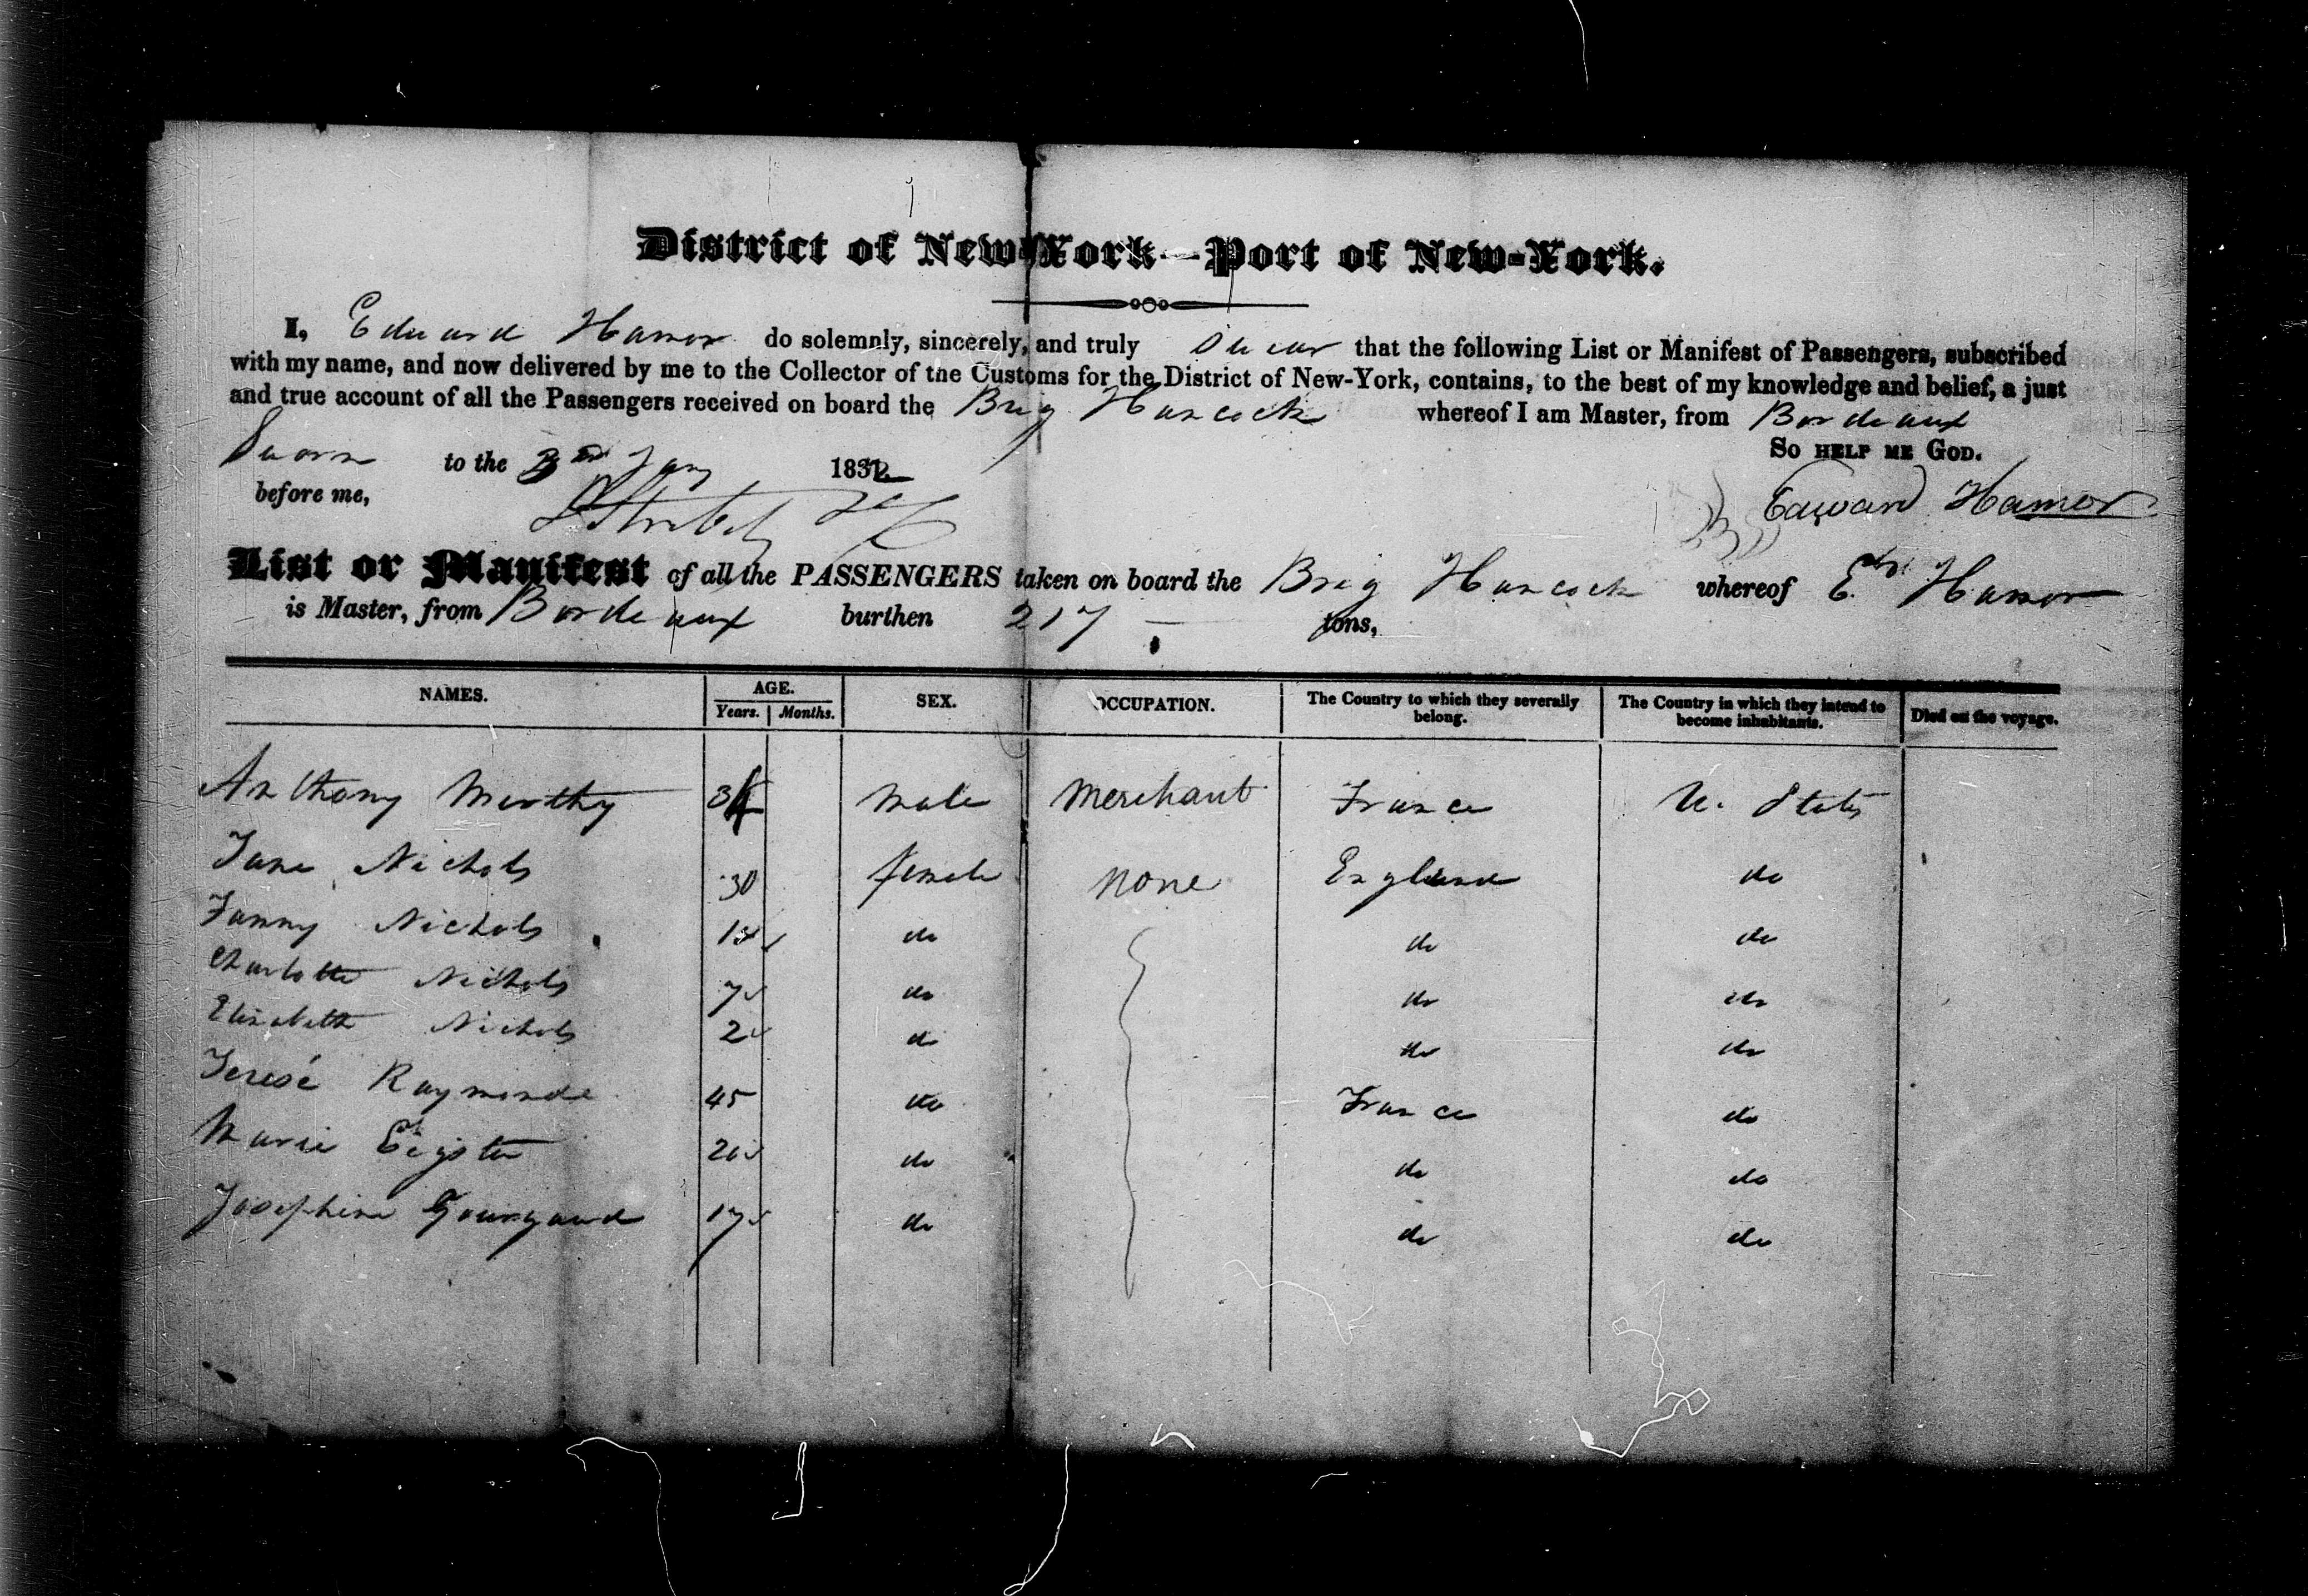 District of New-York—Port of New-York.
I, Edward Hamor do solemnly, sincerely, and truly Swear that the following List or Manifest of Passengers, subscribed
with my name, and now delivered by me to the Collector of the Customs for the District of New-York, contains, to the best of my knowledge and belief, a just
and true account of all the Passengers received on board the Brig Hancock whereof I am Master, from Bordeaux
So HELP ME GOD.
Sworn to the Jany 1832
before me,
Edward Hamor
List or Manifest of all the PASSENGERS taken on board the Brig Hancock whereof Ed. Hamor
is Master, from Bordeaux burthen 217 tons,
NAMES. AGE. SEX. OCCUPATION. The Country to which they severally belong. The Country in which they intend to become inhabitants. Died on the voyage.
Years. Months.
Anthony 34 Male Merchant France U. States
Jane Nichols 30 female none England do
Fanny Nichols do do do
Charlotte Nichols 7 do do do
Elizabeth Nichols 2 do do do
Teresé Raymonde 45 do France do
Marie do do do
Josephine Gourgaud 17 do do do